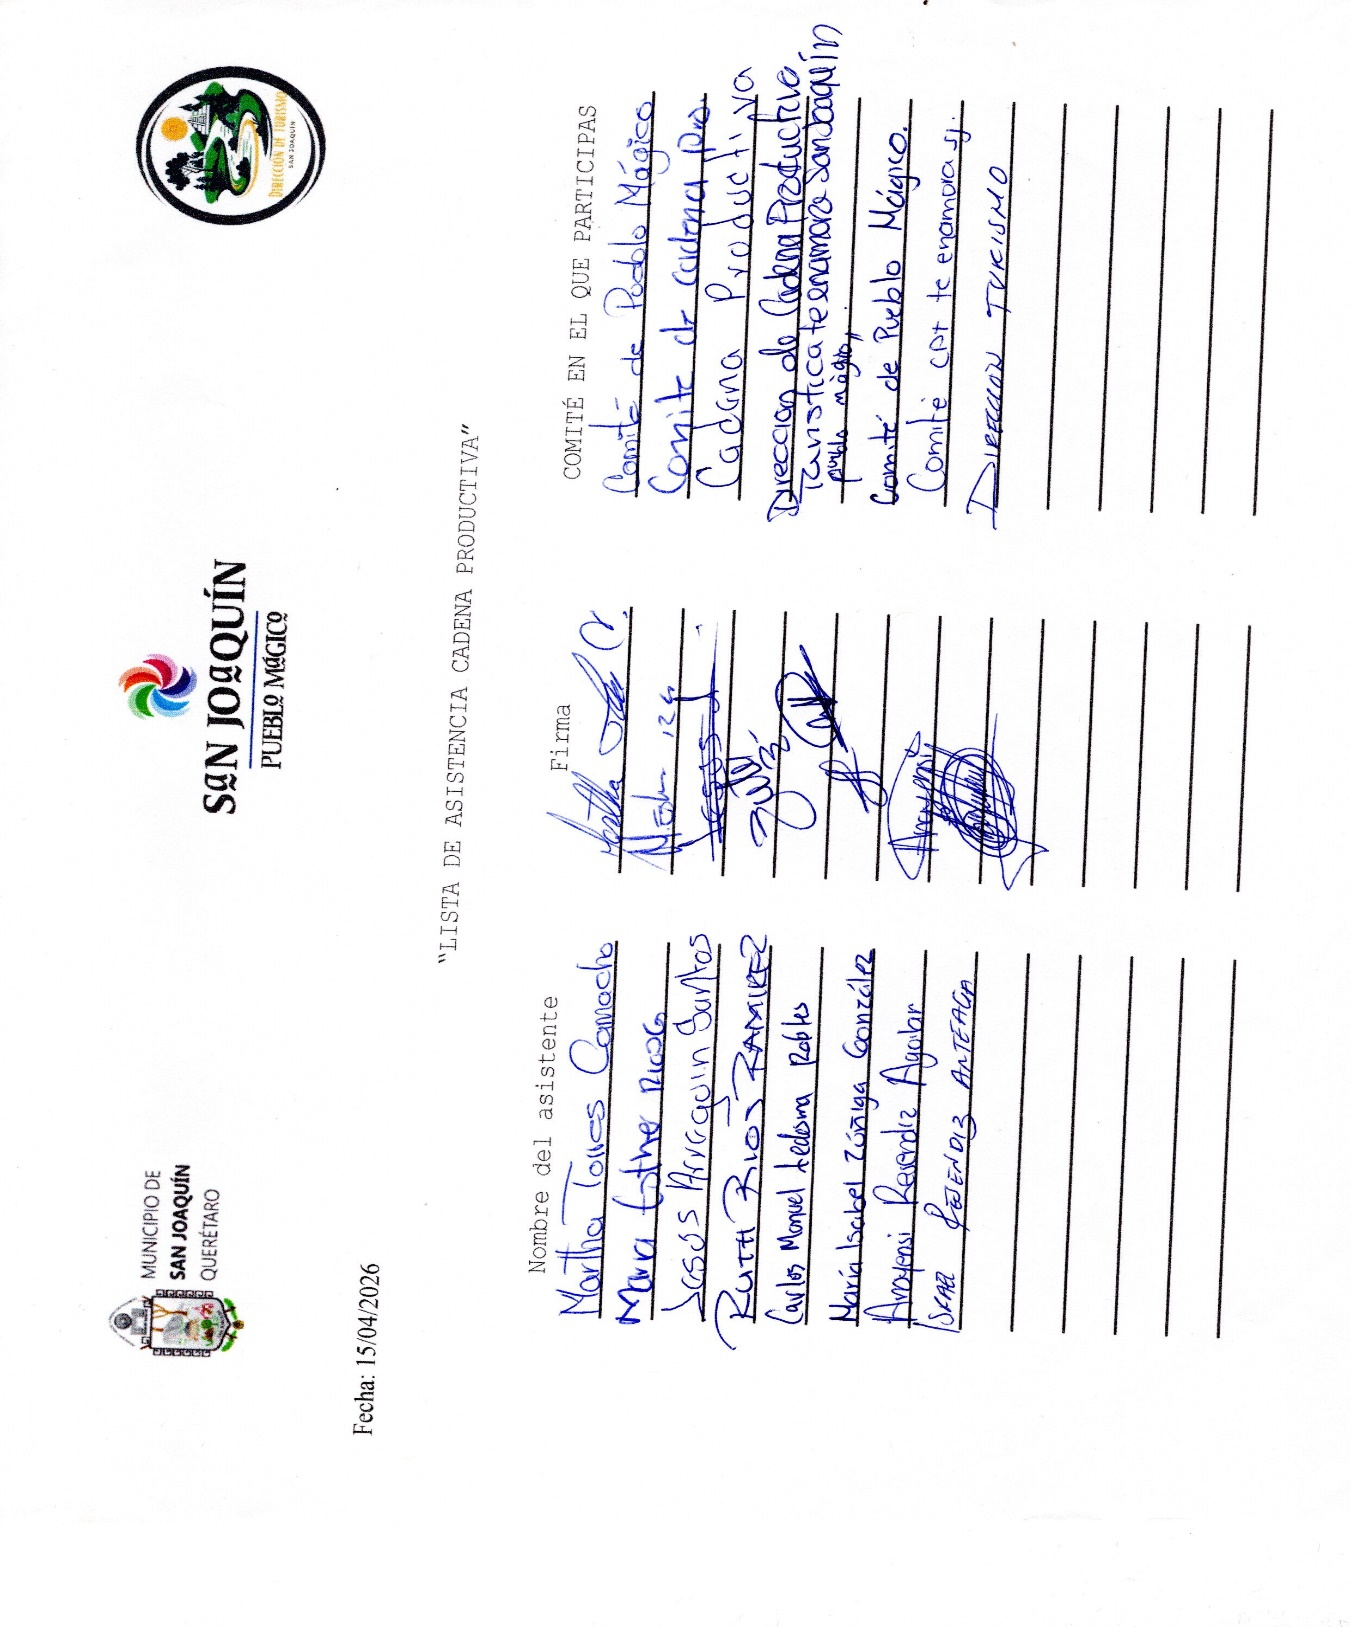 MUNICIPIO DE
SAN JOAQUÍN
QUERÉTARO
SAN JOAQUÍN
PUEBLO MÁGICO
DIRECCIÓN DE TURISMO
SAN JOAQUÍN
Fecha: 15/04/2026
"LISTA DE ASISTENCIA CADENA PRODUCTIVA"
Nombre del asistente Firma COMITÉ EN EL QUE PARTICIPAS
Martha Torres Camacho Martha Comité de Pueblo Mágico
Maria Esther Comite de cadena pro.
Jesus Arreguin Santos Cadena Productiva
RUTH RIOS RAMIREZ Ruth Direccion de Cadena Productiva
Turistica te enamora San Joaquín
pueblo mágico"
Carlos Manuel Ledesma Robles
María Isabel Zúñiga González Comité de Pueblo Mágico.
Anayensi Resendiz Aguilar Anayensi Comité CPT te enamora sj.
ISRAEL RESENDIZ ARTEAGA DIRECCION TURISMO